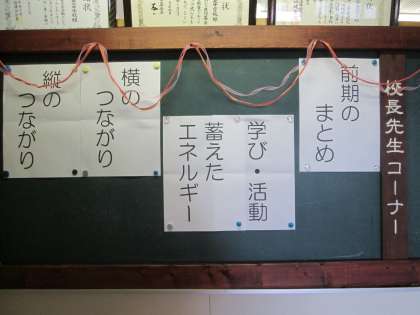 校長先生コーナー
前期の
まとめ
学び・活動
蓄えた
エネルギー
横の
つながり
縦の
つながり
状
状